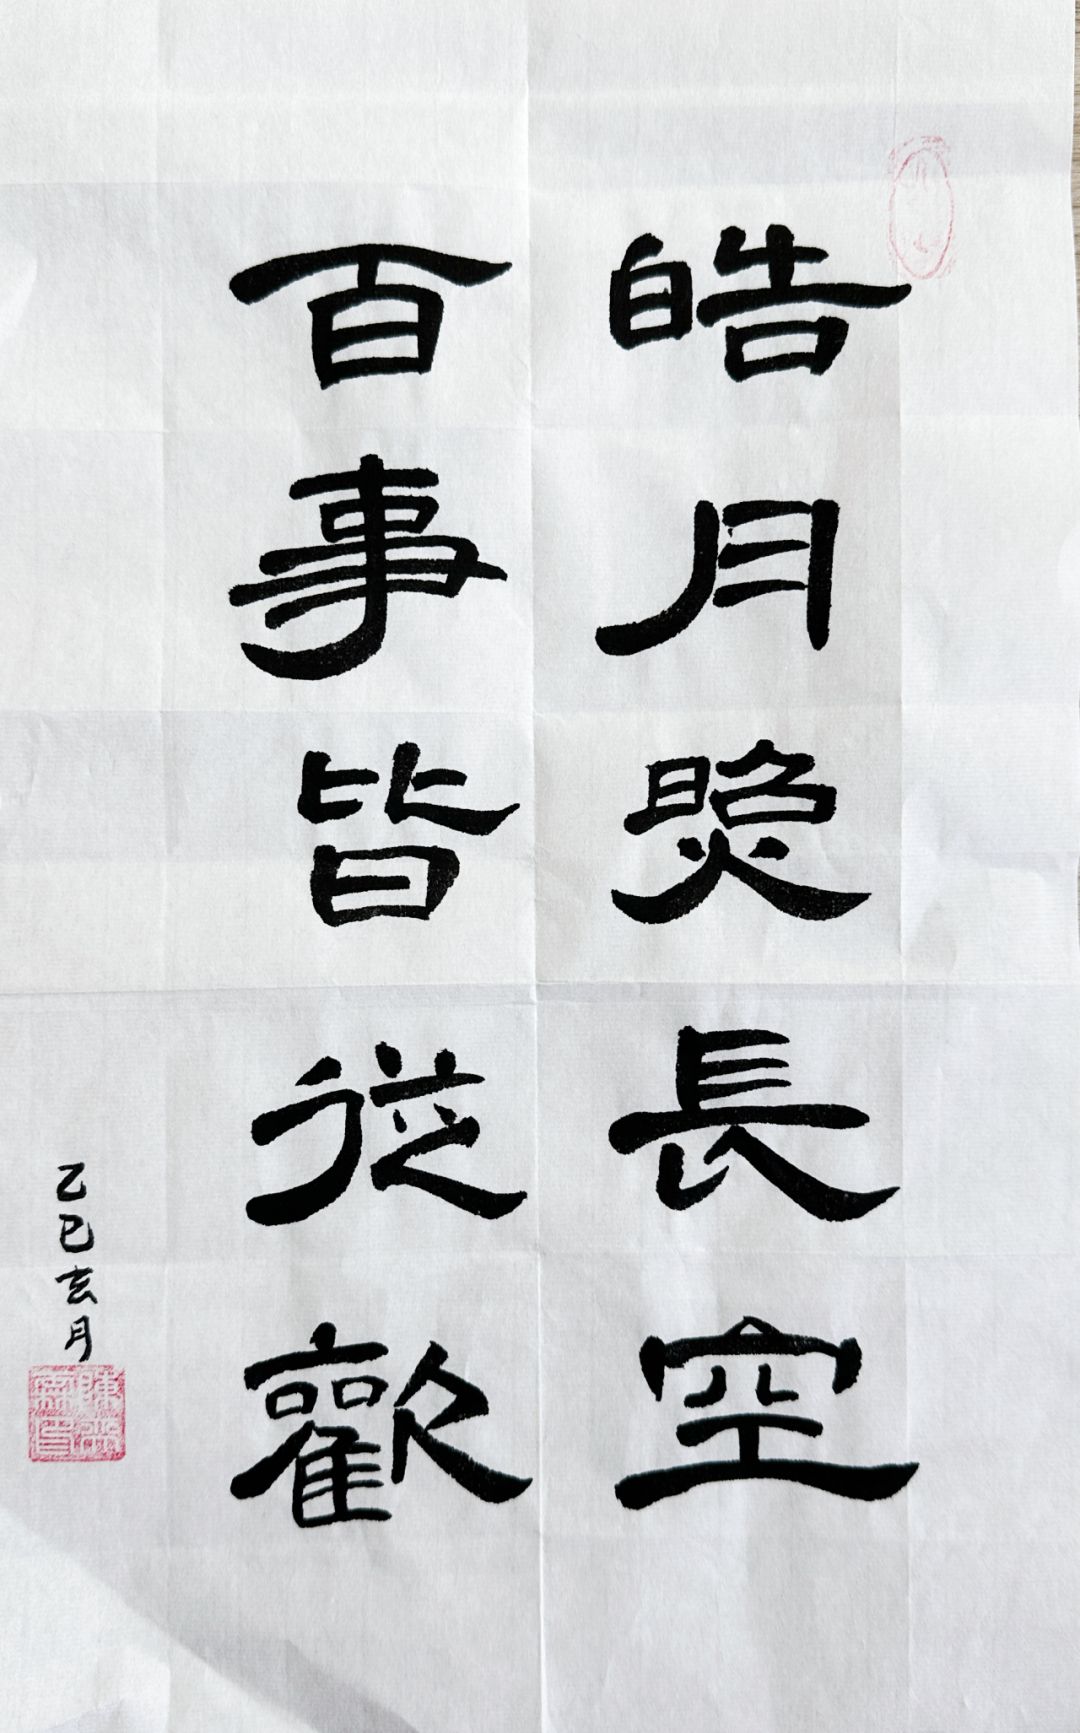 皓月照長空
百事皆從歡
乙巳亥月